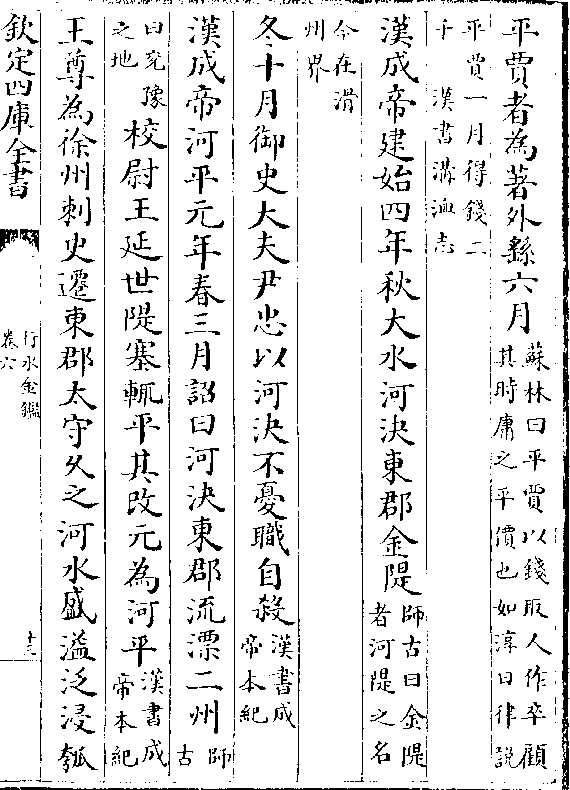 平賈者為著外繇六月
蘇林曰平賈以錢取人作卒顧
其時庸之平價也如淳曰律說
平賈一月得錢二
千　漢書溝洫志
漢成帝建始四年秋大水河決東郡金隄
師古曰金隄
者河隄之名
今在滑
州界
冬十月御史大夫尹忠以河決不憂職自殺
漢書成
帝本紀
漢成帝河平元年春三月詔曰河決東郡流漂二州
師
古
曰兗豫
之地
校尉王延世隄塞輒平其改元為河平
漢書成
帝本紀
王尊為徐州刺史遷東郡太守久之河水盛溢泛浸瓠
欽定四庫全書
行水金鑑
卷六
十三